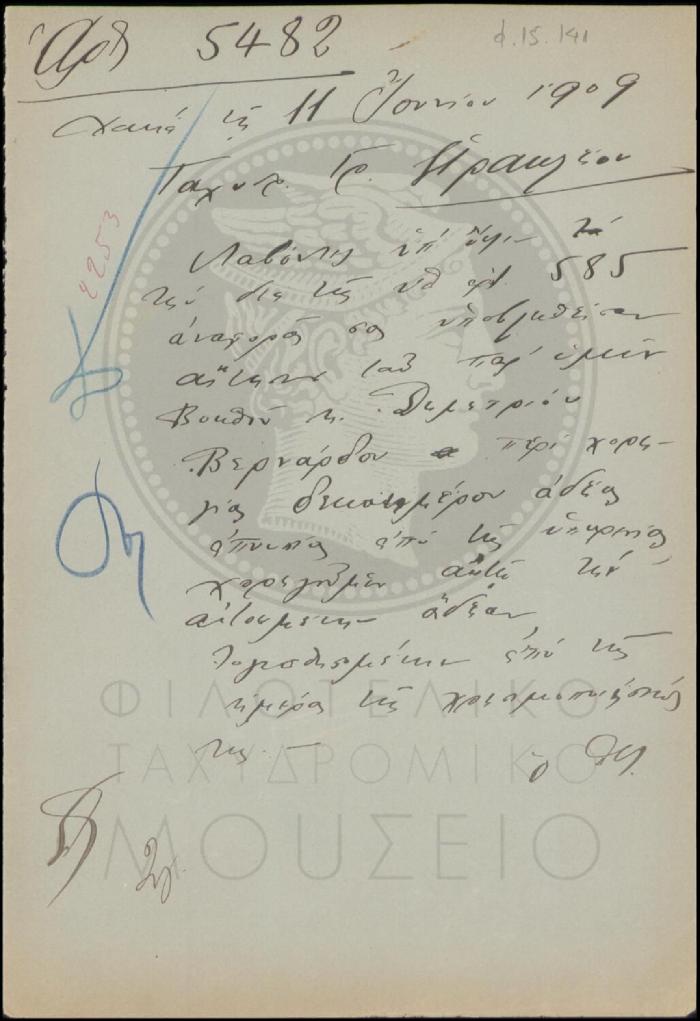 Ἀρθ 5482
φ.15.141
Χανιά τῇ 11 Ἰουνίου 1909
Ταχυδρ. Γρ. Ἡρακλείου
4253
Λαβόντες ὑπ' ὄψιν
τὴν διὰ τῆς ὑπ' ἀρ. 585
ἀναφορᾶς σας ὑποβληθεῖσαν
αἴτησιν τοῦ παρ' ὑμῖν
Βοηθοῦ κ. Δημητρίου
Βερνάρδου περὶ χορη-
γίας δεκαημέρου ἀδείας
ἀπουσίας ἀπὸ τῆς ὑπηρεσίας
χορηγοῦμεν αὐτῷ τὴν
αἰτουμένην ἄδειαν,
λογισθησομένην ἀπὸ τῆς
ἡμέρας τῆς χρησιμοποιήσεώς
της. —
ὁ
ΦΙΛΟΤΕΛΙΚΟ
ΤΑΧΥΔΡΟΜΙΚΟ
ΜΟΥΣΕΙΟ